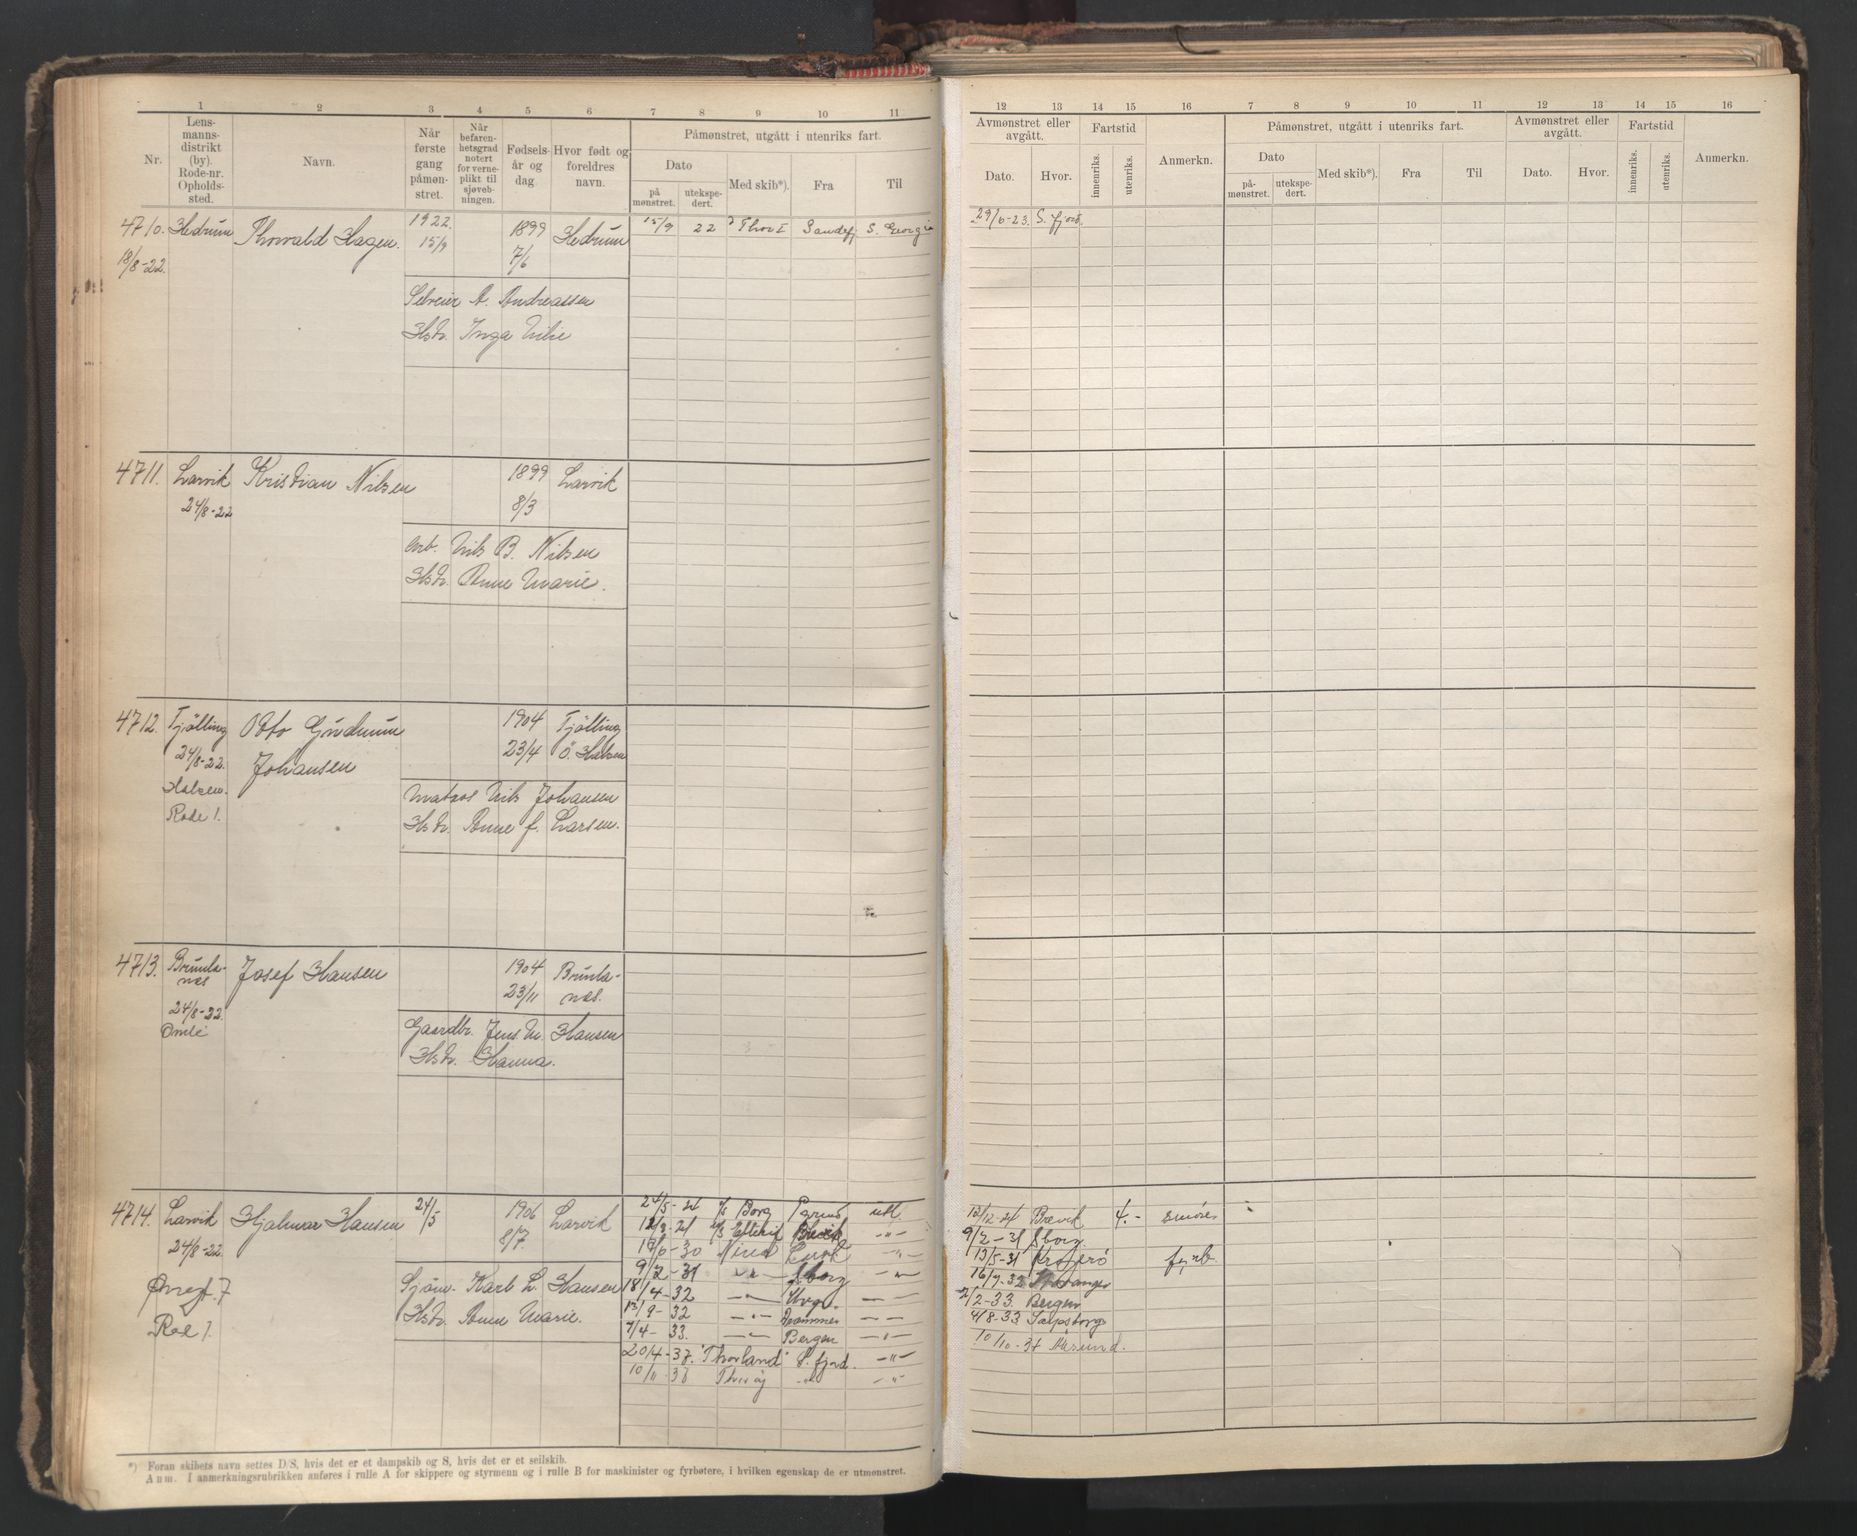 1 2 3 4 5 6 7 8 9 10 11
Nr.
Lens-
manns-
distrikt
(by).
Rode-nr.
Opholds-
sted.
Navn.
Når
første
gang
påmøn-
stret.
Når
befaren-
hetsgrad
notert
for verne-
plikt til
sjøveb-
ningen.
Fødsels-
år og
dag.
Hvor født og
foreldres
navn.
Påmønstret, utgått i utenriks fart.
Dato
på
mønstret.
utekspe-
dert.
Med skib*).
Fra
Til
4710. Hedrum Thorvald Hagen. 1922. 15/9 1899 Hedrum 15/9 22 Thor I Sandefj S. Georgia
18/8-22. 7/6
A. Andreassen
Hstr. Inga
4711. Larvik Kristian Nilsen 1899 Larvik
24/8-22 8/3
Arb. Nils B. Nilsen
Hstr. Anne Marie.
4712. Tjölling Otto Gudmum 1904 Tjölling
24/8-22. Johansen 23/4 Ö. Halsen
Halsen.
Rode 1.
Matros Nils Johansen
Hstr. Anne f. Larsen.
4713. Brunla- Josef Hansen 1904 Brunla-
nes 23/11 nes.
24/8-22.
Omle
Gaardbr. Jens M. Hansen
Hstr. Hanna.
4714. Larvik Hjalmar Hansen 24/5 1906 Larvik 24/5-24 Borg utl.
24/8-22. 8/7.
7
1.
Sjöm. Karl L. Hansen
Hstr. Anne Marie.
-30 Nina
9/2-31 Sborg
18/4-32
13/9-32 Drammen
7/4-33. Bergen
20/4-37. "Thorland" S.fjord.
10/11-38 Thorøy
*) Foran skibets navn settes D/S, hvis det er et dampskib og S, hvis det er et seilskib.
Anm. I anmerkningsrubrikken anføres i rulle A for skippere og styrmenn og i rulle B for maskinister og fyrbøtere, i hvilken egenskap de er utmønstret.
12 13 14 15 16 7 8 9 10 11 12 13 14 15 16
Avmønstret eller
avgått.
Dato.
Hvor.
Fartstid
innenriks.
utenriks.
Anmerkn.
Påmønstret, utgått i utenriks fart.
Dato
på-
mønstret.
utekspe-
dert.
Med skib*).
Fra
Til
Avmønstret eller
avgått.
Dato.
Hvor.
Fartstid
innenriks.
utenriks.
Anmerkn.
29/6-23. S. fjord.
13/12-24 Brevik 4.- smöres
9/2-31 Sborg
13/5-31 Kragerö fyrb.
16/9-32 Stavanger
2/2-33. Bergen
4/8-33. Sarpsborg
10/10-37